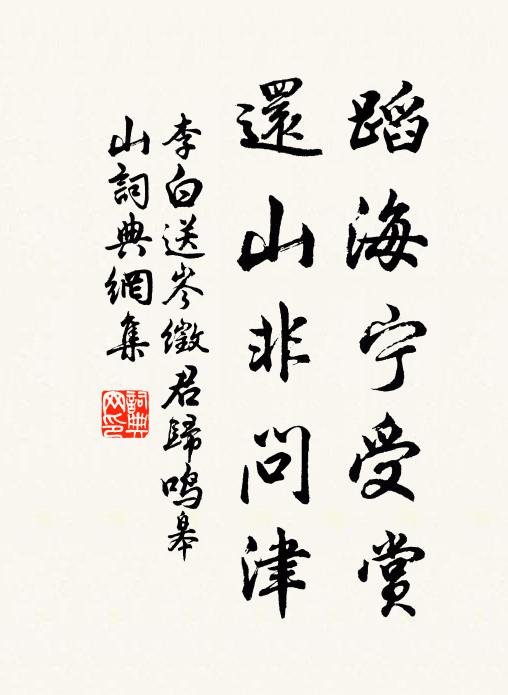 蹈海宁受賞
還山非問津
李白送岑徵君歸鳴皋
山詞典網集
詞典网印